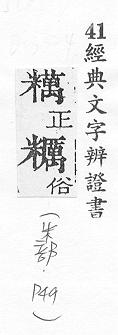 41經典文字辨證書
䊪正
糲俗
(米部.P49)